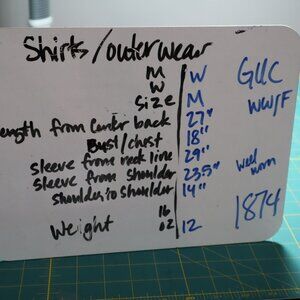 Shirts/outerwear
M W GUC
W
Size M WW/F
ength from center back 27"
Bust/chest 18"
sleeve from neck line 29" well
sleeve from shoulder 23.5" worn
shoulder to shoulder 14"
16 1874
Weight oz 12